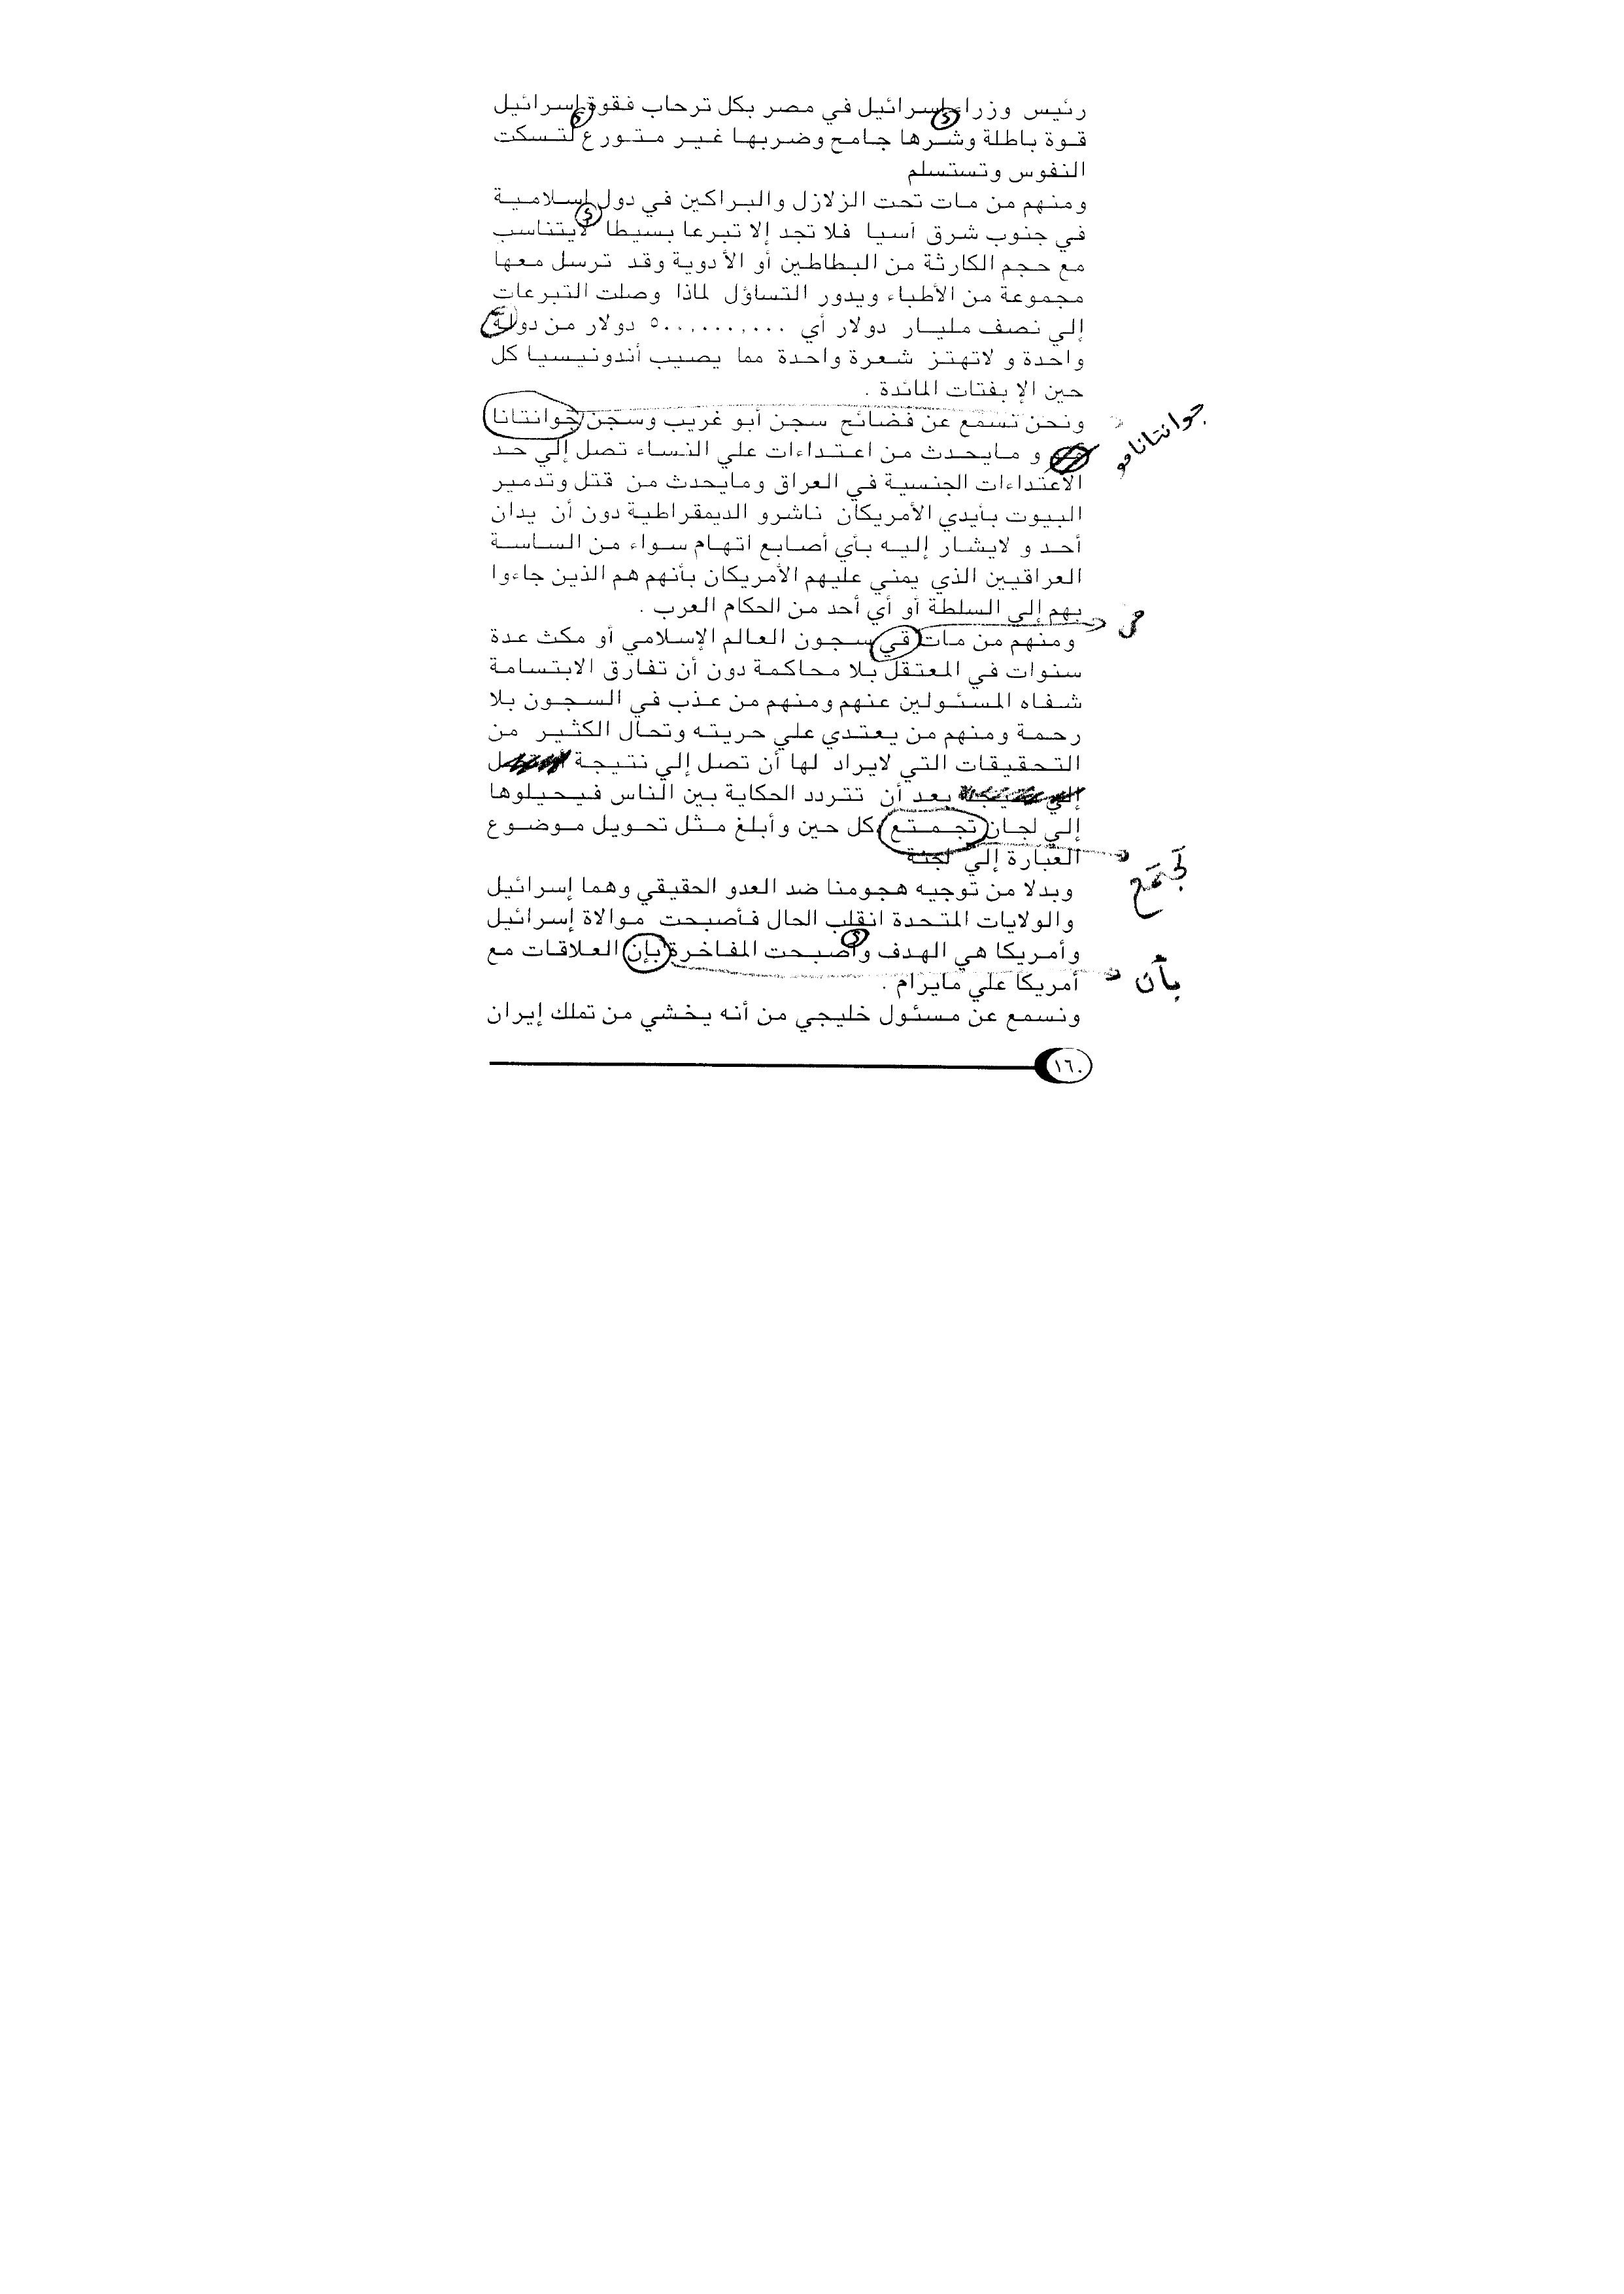 رئيس وزراء إسرائيل في مصر بكل ترحاب فقوة إسرائيل
قوة باطلة وشرها جامح وضربها غير متورع لتسكت
النفوس وتستسلم
ومنهم من مات تحت الزلازل والبراكين في دول إسلامية
في جنوب شرق آسيا فلا تجد إلا تبرعا بسيطا لايتناسب
مع حجم الكارثة من البطاطين أو الأدوية وقد ترسل معها
مجموعة من الأطباء ويدور التساؤل لماذا وصلت التبرعات
إلي نصف مليار دولار أي ٥٠٠,٠٠٠,٠٠٠ دولار من دولة
واحدة و لاتهتز شعرة واحدة مما يصيب أندونيسيا كل
حين الإ بفتات المائدة .
ونحن نسمع عن فضائح سجن أبو غريب وسجن جوانتانا
جوانتانامو
و مايحدث من اعتداءات علي النساء تصل إلي حد
الاعتداءات الجنسية في العراق ومايحدث من قتل وتدمير
البيوت بأيدي الأمريكان ناشرو الديمقراطية دون أن يدان
أحد و لايشار إليه بأي أصابع اتهام سواء من الساسة
العراقيين الذي يمني عليهم الأمريكان بأنهم هم الذين جاءوا
بهم إلي السلطة أو أي أحد من الحكام العرب .
ومنهم من مات قي سجون العالم الإسلامي أو مكث عدة
سنوات في المعتقل بلا محاكمة دون أن تفارق الابتسامة
شفاه المسئولين عنهم ومنهم من عذب في السجون بلا
رحمة ومنهم من يعتدي علي حريته وتحال الكثير من
التحقيقات التي لايراد لها أن تصل إلي نتيجة
بعد أن تتردد الحكاية بين الناس فيحيلوها
إلي لجان تجمتع كل حين وأبلغ مثل تحويل موضوع
العبارة إلي لجنة
وبدلا من توجيه هجومنا ضد العدو الحقيقي وهما إسرائيل
والولايات المتحدة انقلب الحال فأصبحت موالاة إسرائيل
وأمريكا هي الهدف وأصبحت المفاخرة بإن العلاقات مع
بأن
أمريكا علي مايرام .
ونسمع عن مسئول خليجي من أنه يخشي من تملك إيران
١٦٠